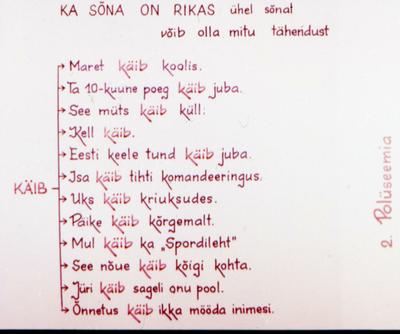 KA SÕNA ON RIKAS ühel sõnal
võib olla mitu tähendust
KÄIB
Maret käib koolis.
Ta 10-kuune poeg käib juba.
See müts käib küll.
Kell käib.
Eesti keele tund käib juba.
Isa käib tihti komandeeringus.
Uks käib kriuksudes.
Päike käib kõrgemalt.
Mul käib ka „Spordileht"
See nõue käib kõigi kohta.
Jüri käib sageli onu pool.
Õnnetus käib ikka mööda inimesi.
2. Polüseemia